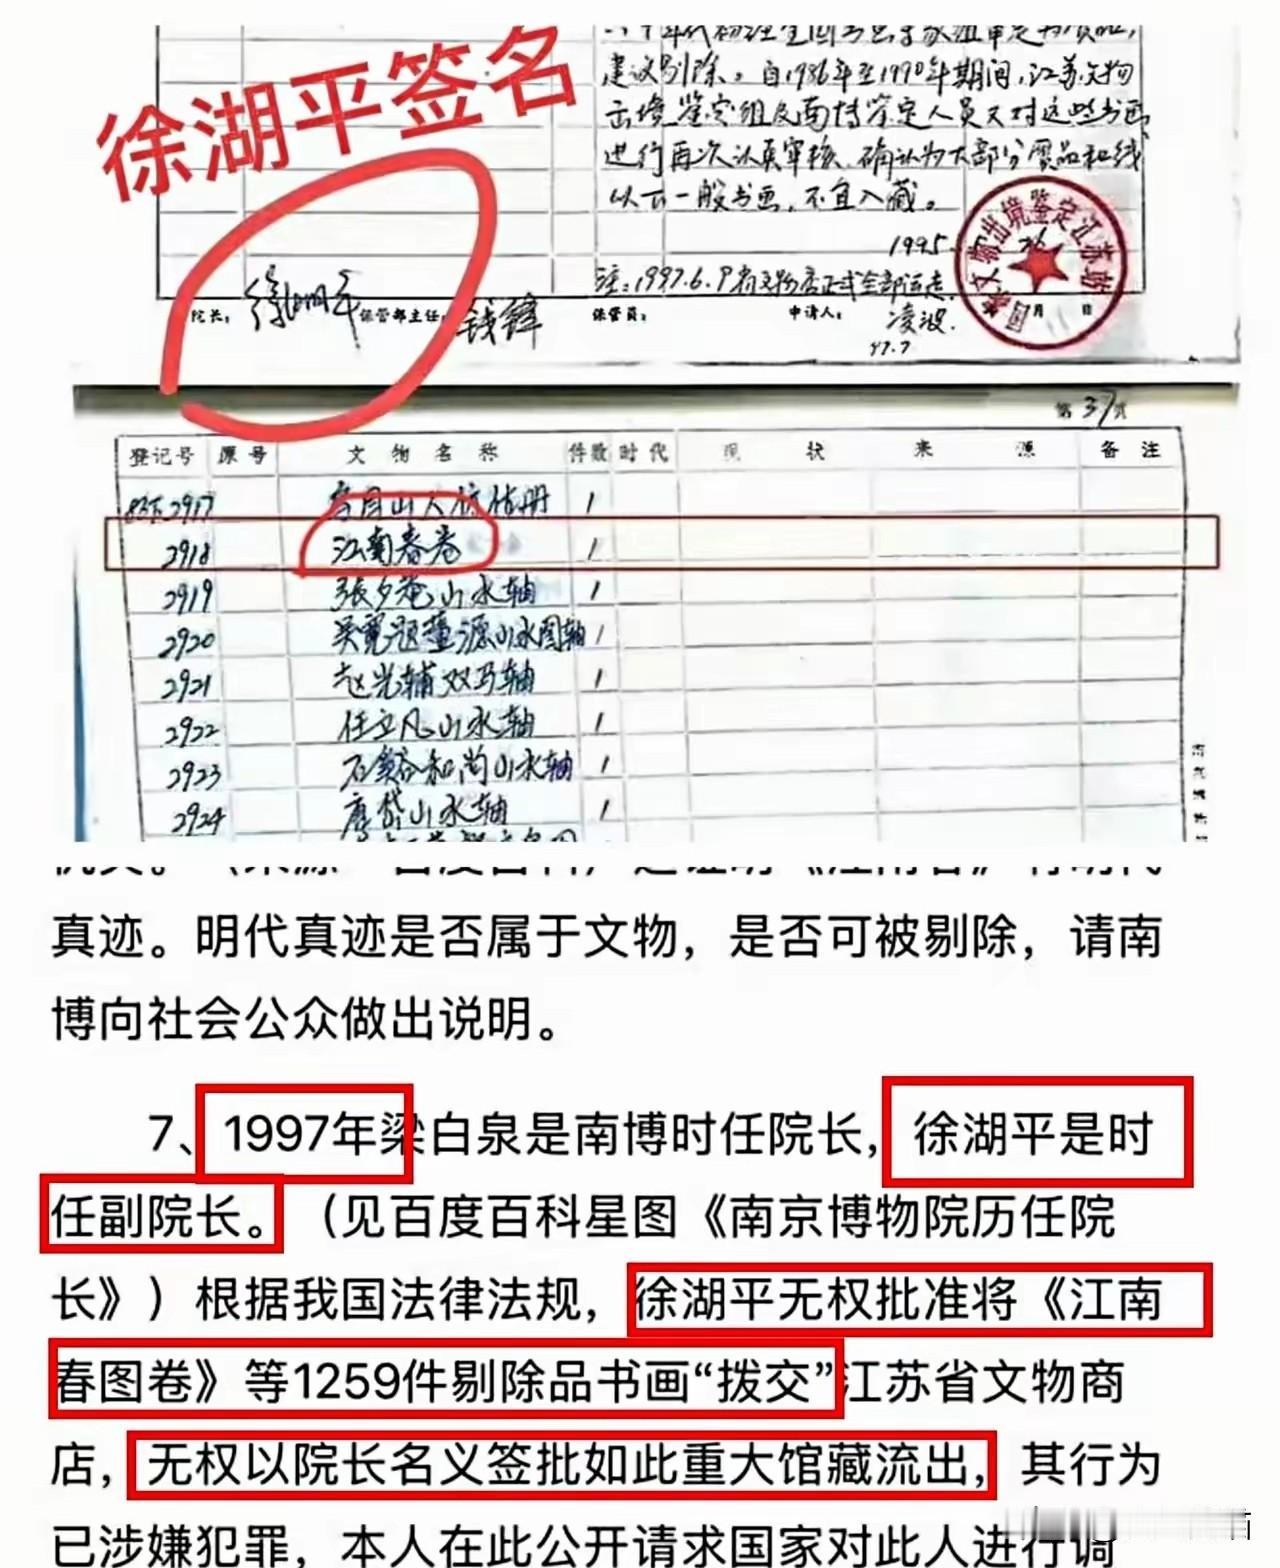 徐湖平签名
建议剔除。自1986年至1990年期间,江苏文物
出境鉴定组及南博鉴定人员又对这些书画
进行再次认真审核,确认为大部分赝品和线
以下一般书画,不宜入藏。
1995.
国家文物出境鉴定江苏站
月 日
注:1997.6.9省文物店正式全部运走.
院长: 徐湖平 保管部主任: 钱锋 保管员: 申请人: 凌波.
97.7
第37页
登记号 原号 文物名称 件数 时代 现状 来源 备注
2917 1
2918 江南春卷 1
2919 張夕菴山水轴 1
2920 吴寛题董源山水图轴 1
2921 赵光辅双马轴 1
2922 任立凡山水轴 1
2923 石谿和尚山水轴 1
2924 唐岱山水轴 1
真迹。明代真迹是否属于文物,是否可被剔除,请南
博向社会公众做出说明。
7、1997年梁白泉是南博时任院长,徐湖平是时
任副院长。(见百度百科星图《南京博物院历任院
长》)根据我国法律法规,徐湖平无权批准将《江南
春图卷》等1259件剔除品书画“拨交”江苏省文物商
店,无权以院长名义签批如此重大馆藏流出,其行为
已涉嫌犯罪,本人在此公开请求国家对此人进行调